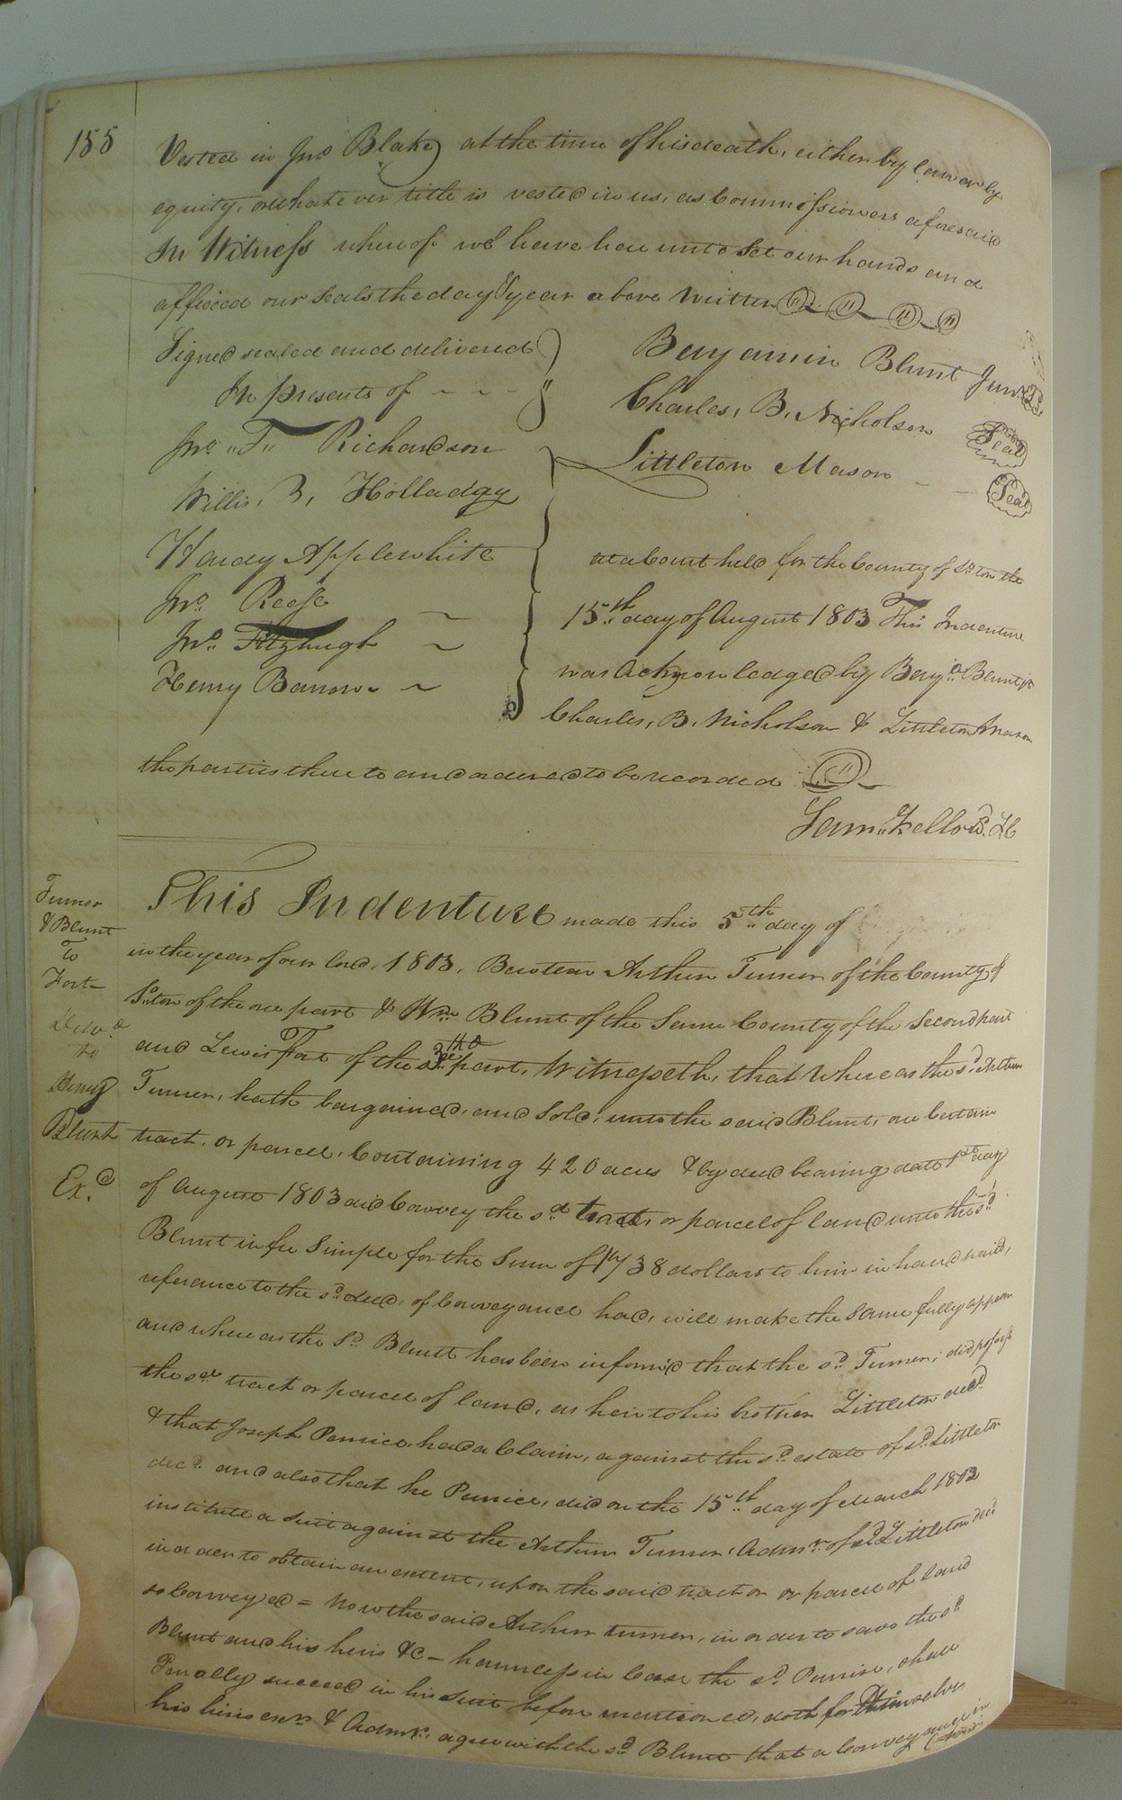 155
Vested in Jno Blake at the time of his death, either by law or by
equity, or whatever title is vested in us, as Commissioners aforesaid
In Witness whereof we have here unto set our hands and
affixed our seals the day & year above written
Signed sealed and delivered
In presents of
Benjamin Blunt Junr. Seal
Charles, B, Nicholson Seal
Littleton Mason Seal
Jno. T. Richardson
Willis, B, Holladay
Hardy Applewhite
Jno. Reese
Jno. Fitzhugh
Henry Barrow
at a Court held for the County of So.ton the
15th day of August 1803 This Indenture
was Acknowledged by Benja. Blunt jr
Charles, B. Nicholson & Littleton Mason
the parties thereto and ordered to be recorded
Saml. Kello
This Indenture made this 5th day of
in the year of our Lord, 1803, Between Arthur Turner of the County of
So.ton of the one part & Wm. Blunt of the Same County of the Second part
and Lewis Fort of the 3rd part, Witnesseth, that Whereas the sd. Arthur
Turner, hath bargained, and Sold, unto the said Blunt, one Certain
tract, or parcel, Containing 420 acres & by deed bearing date 1st day
of August 1803 did Convey the sd. tract, or parcel of land unto the sd.
Blunt in fee Simple for the Sum of 1738 dollars to him in hand paid,
reference to the sd. deed, of Conveyance had, will make the Same fully appear
and where as the Sd. Blunt has been informed that the sd. Turner, did possess
the sd. tract or parcel of land, as heir to his brother Littleton decd.
& that Joseph Pennice had a Claim, against the sd. estate of sd. Littleton
decd. and also that he Pennice, did on the 15th day of March 1802
institute a suit against the Arthur Turner, Admr. of sd. Littleton decd
in order to obtain an extent, upon the said tract or or parcel of land
so Conveyed = Now the said Arthur turner, in order to save the sd.
Blunt and his heirs &c - harmless in Case the sd. Pennice, shall
Finally succeed in his suit before mentioned, doth for themselves
his heirs exrs. & Admrs. agree with the sd. Blunt that a Conveyance in
Turner
& Blunt
To
Fort
Delvd.
to
Henry
Blunt
Exd.